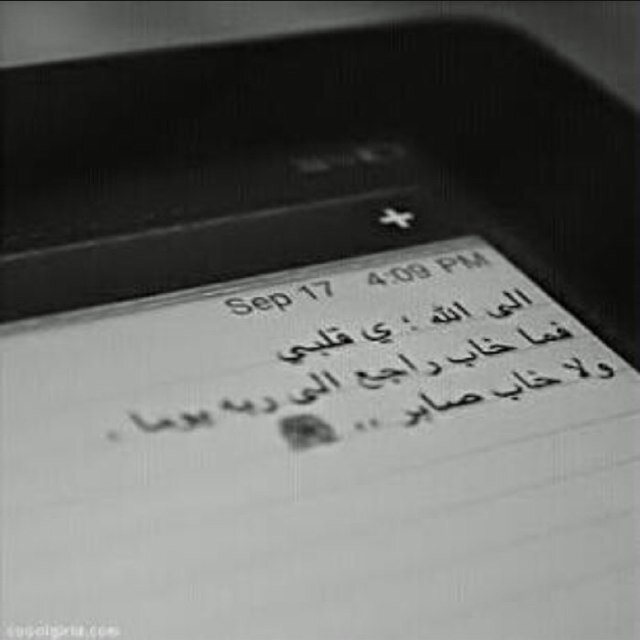 Sep 17 4:09 PM
الى الله ؛ ي قلبي
فما خاب راجع الى ربه يوما .
ولا خاب صابر ..